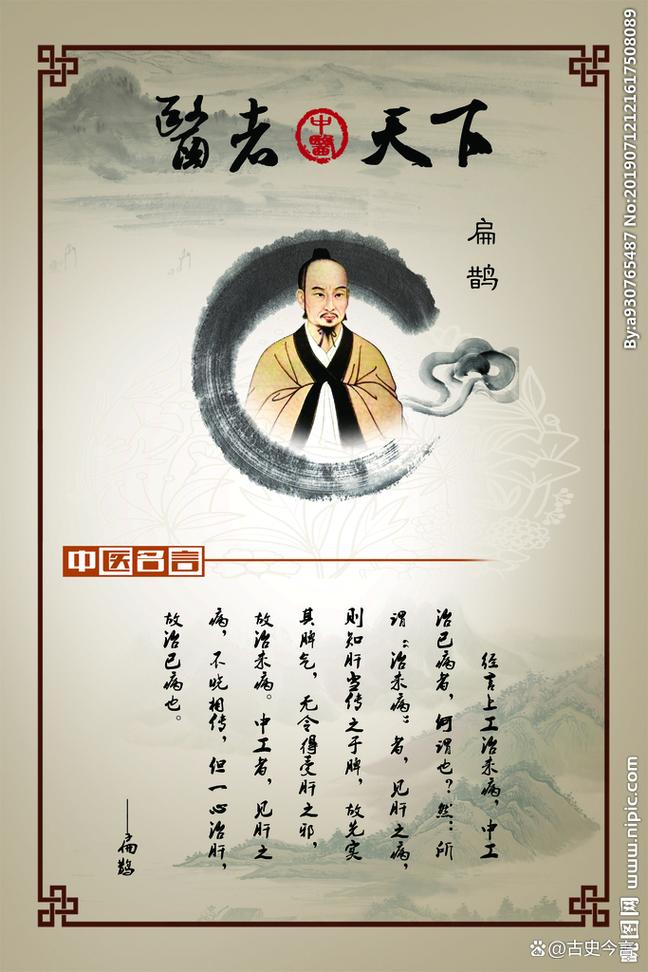 醫者天下
中醫
扁鹊
中医名言
经言上工治未病，中工
治已病者，何谓也？然：所
谓：治未病：者，见肝之病，
则知肝当传之于脾，故先实
其脾气，无令得受肝之邪，
故治未病。中工者，见肝之
病，不晓相传，但一心治肝，
故治已病也。
——扁鹊
By:a930765487 No:20190712121617508089
昵图网 www.nipic.com
@古史今言